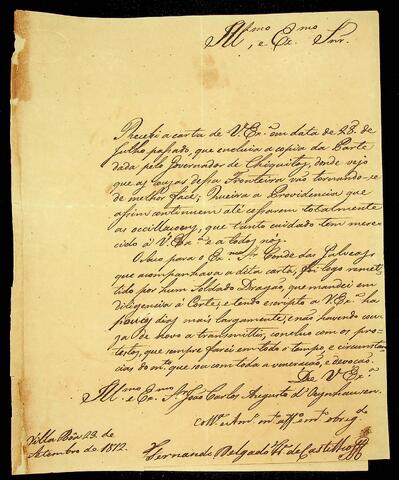 Ill.mo e Ex.mo Snr.
Recebi a carta de V. Ex.a em data de 28 de
Julho passado, que incluia a copia da Parte
dada pelo Governador de Chiquitos, donde vejo
que as couzas dessa Fronteira vão tornando-se
de melhor face; Queira a Providencia que
assim continuem até cessarem totalmente
as occillaçoens, que tanto cuidado tem mere-
cido á V. Ex.a e a todos nós.
O para o Ex.mo Sr. Conde das Galveas
que acompanhava a dita carta, foi logo remet-
tido por hum Soldado Dragão, que mandei em
diligencia á Corte; e tendo escripto a V. Ex.a ha
poucos dias mais largamente, e não havendo cou-
za de novo a transmittir, concluo com os pro-
testos, que sempre farei em todo o tempo e circunstan-
cias de que sou com toda a veneração, e devoção.
De V. Ex.a
Ill.mo e Ex.mo Sr. João Carlos Augusto d'Oeynhausen
m.to e obrig.do
Villa Bôa 23 de
Setembro de 1812.
Fernando Delgado Fr. de Castilho